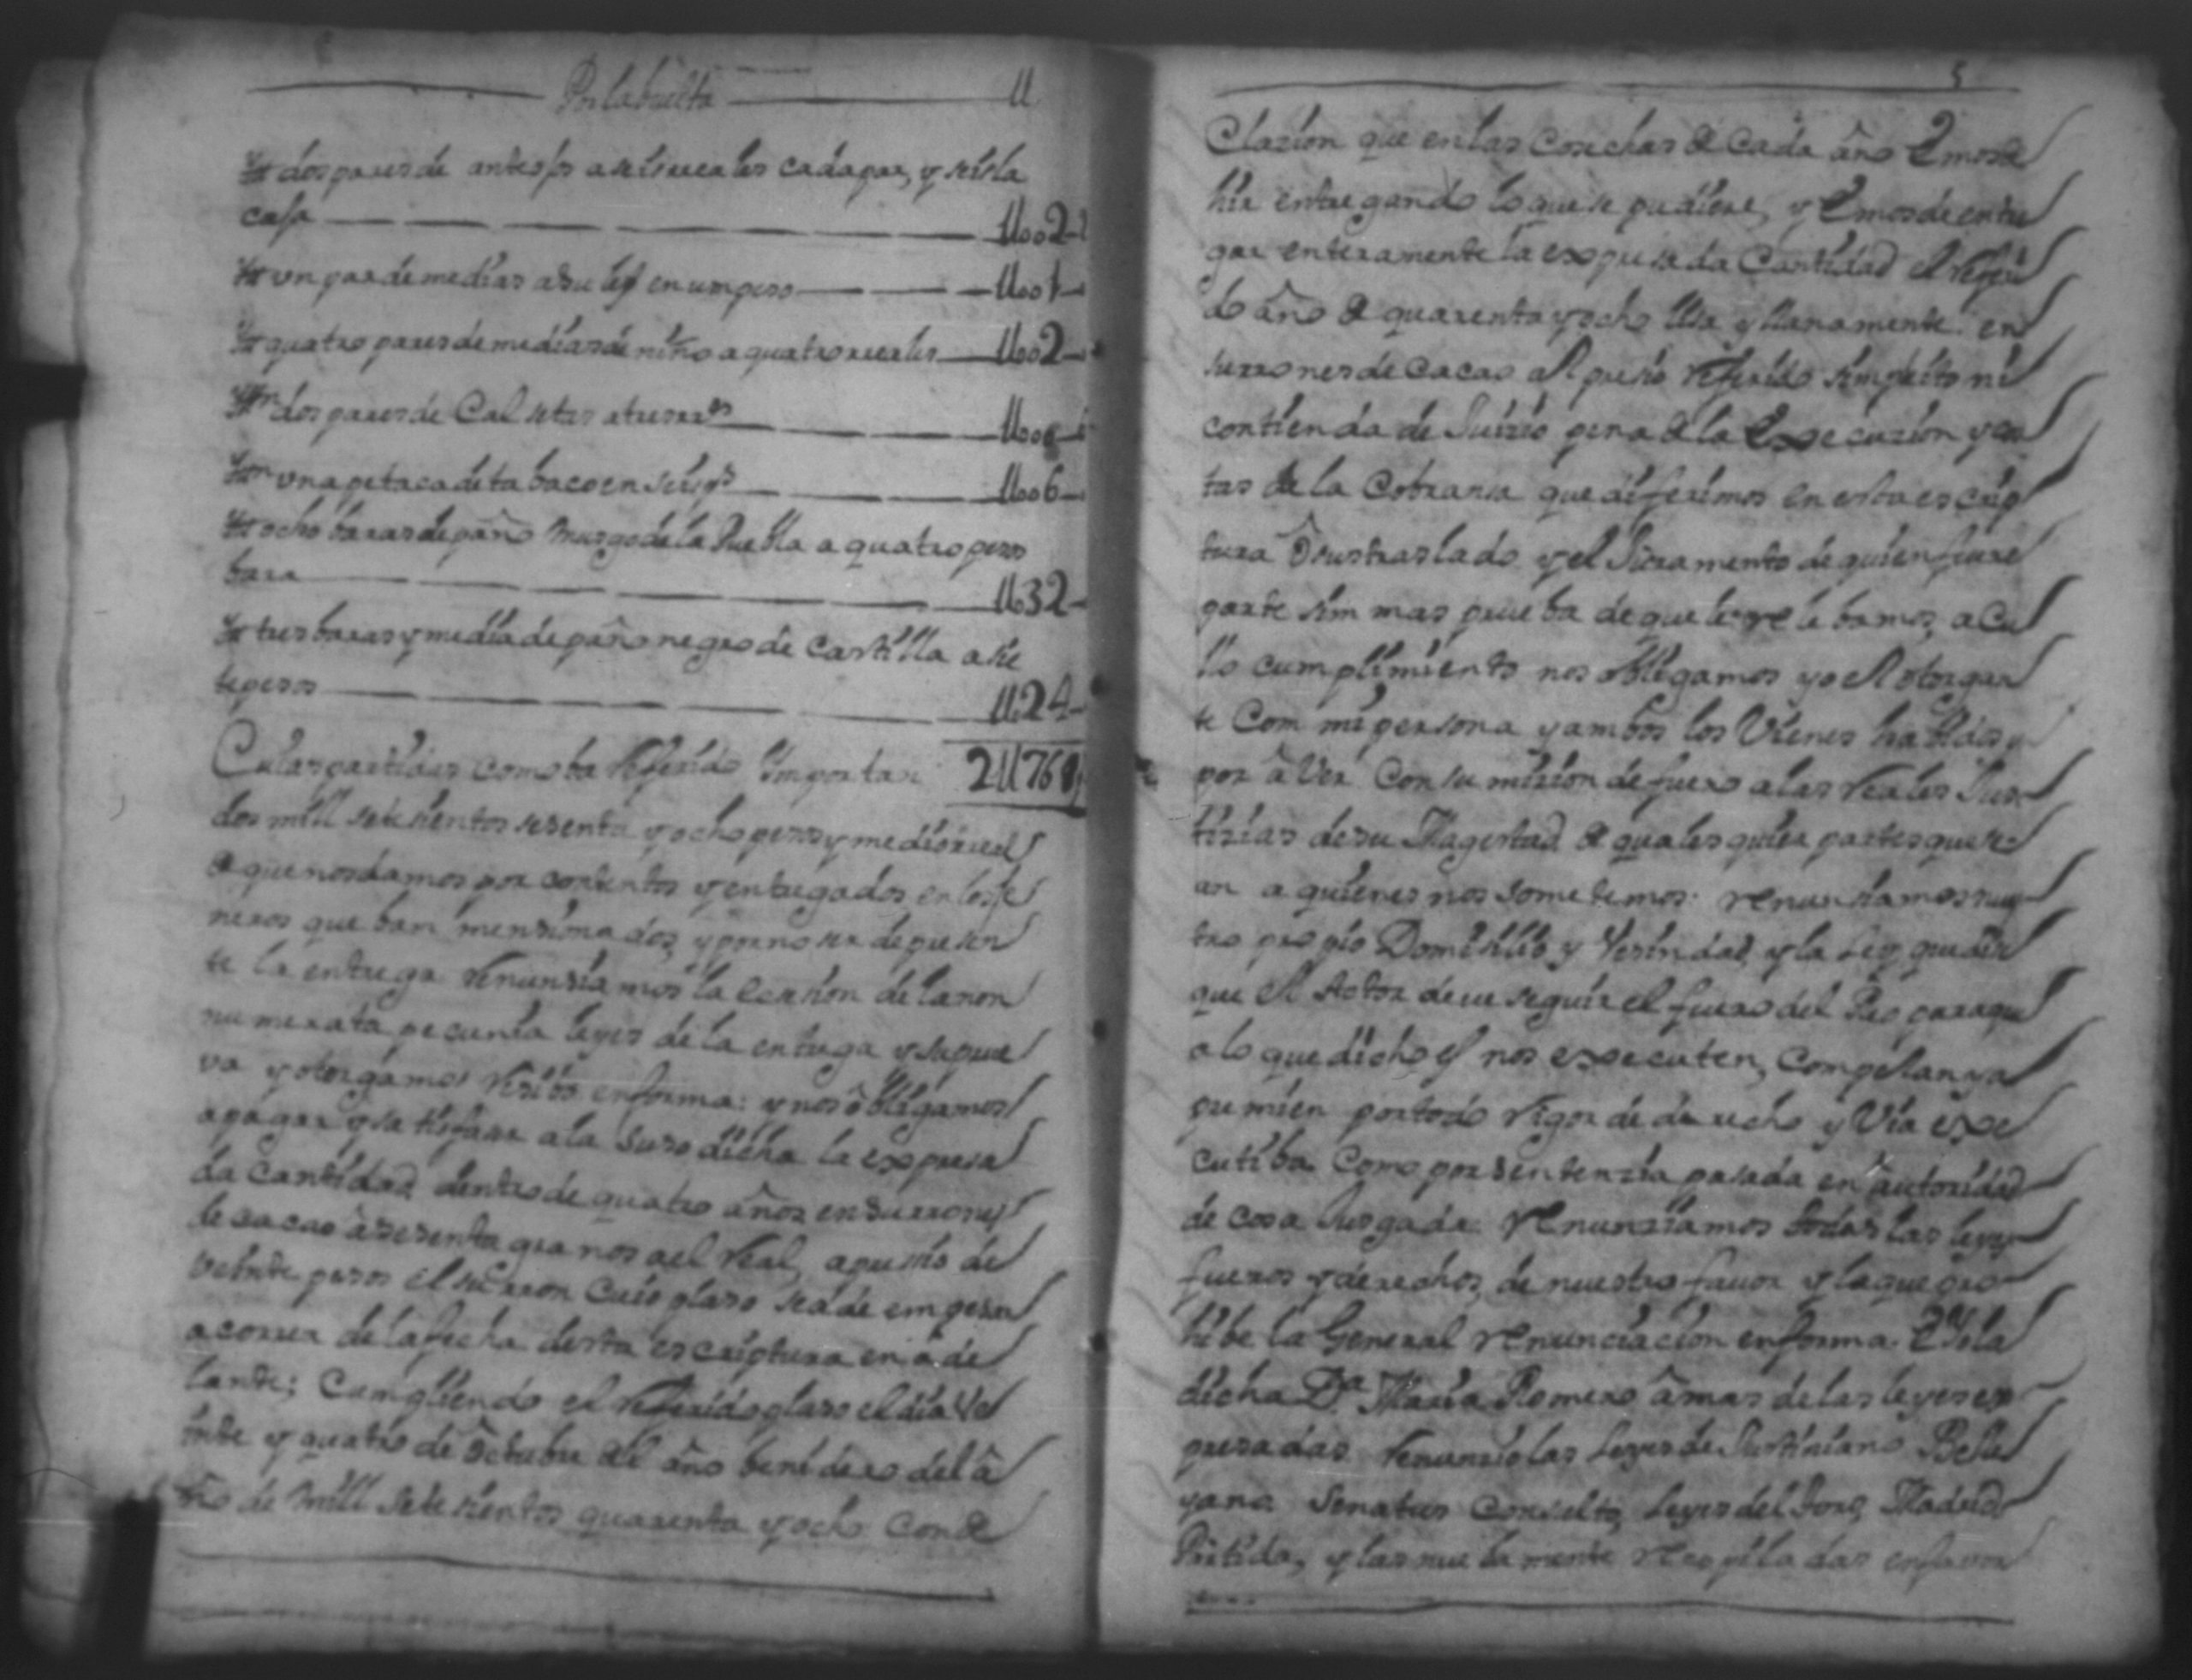 Por la buelta U
Yt dos pares de anteojos a seis reales cada par, y seis la
caja U002-
Yt un par de medias azules en un peso U001-
Yt quatro pares de medias de niño a quatro reales U002-
Ytn dos pares de Calsetas a tres rrs U00
Ytn una petaca de tabaco en seis ps U006-
Yt ocho baras de paño musgo de la Puebla a quatro pesos
bara U032-
Yt tres baras y media de paño negro de Castilla a sie
te pesos U024-
Cuias partidas como ba referido Importan 2U768
dos mill setesientos sesenta y ocho pesos y medio real
de que nos damos por contentos y entregados en los ge
neros que ban mensionados, y por no ser de presen
te la entrega renunsiamos la exension de la non
numerata pecunia leyes de la entrega y su prue
va y otorgamos resibo en forma: y nos obligamos
a pagar y satisfaser a la suso dicha la expresa
da cantidad dentro de quatro años en surrones
de cacao a sesenta granos a el real, a presio de
veinte pesos el surron Cuio plaso sea de empesar
a correr de la fecha desta escriptura en ade
lante; Cumpliendo el referido plaso el dia ve
inte y quatro de octubre del año benidero del a
ño de mill setesientos quarenta y ocho Con de
5
Clazion que en las Cosechas de Cada año Emos de
hir entregando lo que se pudiere, y Emos de entre
gar enteramente la expresada Cantidad el referi
do año de quarenta y ocho lisa y llanamente en
surrones de Cacao al presio referido sin pleito ni
contienda de Juizio pena de la Execuzion y cos
tas de la Cobransa que diferimos en esta escrip
tura o su traslado y el Juramento de quien fuere
parte sin mas prueba de que le relebamos, a Cu
llo cumplimiento nos obligamos yo el otorgan
te Con mi persona y ambos los Vienes habidos y
por aver Con sumision de fuero a las reales Jus
tizias de su Magestad de qualesquier partes que se
an a quienes nos sometemos: renunsiamos nues
tro propio Domisilio y Vesindad y la Ley que dise
que el Actor deve seguir el fuero del Reo para que
a lo que dicho es nos executen, Compelan y a
premien por todo rigor de derecho y Via exe
cutiba Como por sentenzia pasada en autoridad
de cosa Jusgada: renunziamos todas las leyes
fueros y derechos de nuestro favor y la que pro
hibe la General renunciacion en forma. E Yo la
dicha Da. Maria Romero a mas de las leyes ex
presadas renunzio las Leyes de Justiniano Bele
yano Senatus Consulto, Leyes del Toro, Madrid
Partida, y las nuebamente recopiladas en favor